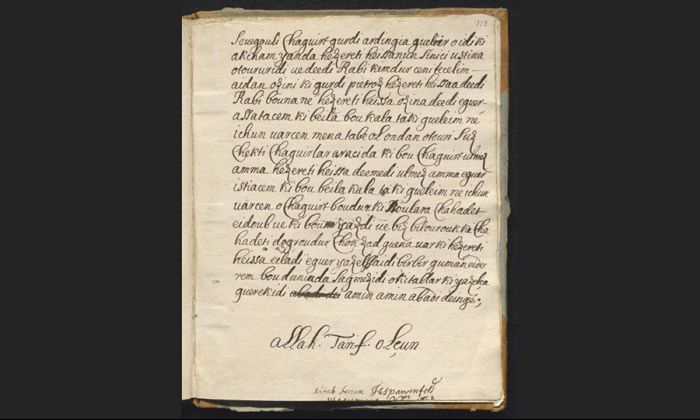 113
Sevegouli Chaguirt gurdi ardingia guelur oidi ki
akcham yanda hezereti heissanun sinici ustina
otoururidi ve deedi Rabi kimdur ceni tecelim
aidan ozini ki gurdi pietros hezereti heissaa deedi
Rabi bouna ne hezereti heissa ozina deedi eguer
astatacem ki beila bou kala taki gueleim ne
ichun varcen mena tabe ol ondan otouri suz
Chekti Chaguirlar aracida ki bou Chaguirt ulmez
amma hezereti heissa deemedi ulmez amma eguer
istiacem ki bou beila kala ta ki gueleim ne ichun
varcen o Chaguirt boudur ki boulara Chahadet
eidoul ve ki boun yazdi ve biz bilourouk ka Cha
hadeti dogroudur Chok zad guena var ki hezereti
heissa eiladi eguer yazelssaidi bir bir guman eider
rem bou duninda sagmezidi o kitablar ki yazcha
guerekidi amin amin abadi deinge;
allah. Tarif. olsun
kitab benum Sparwenfeld